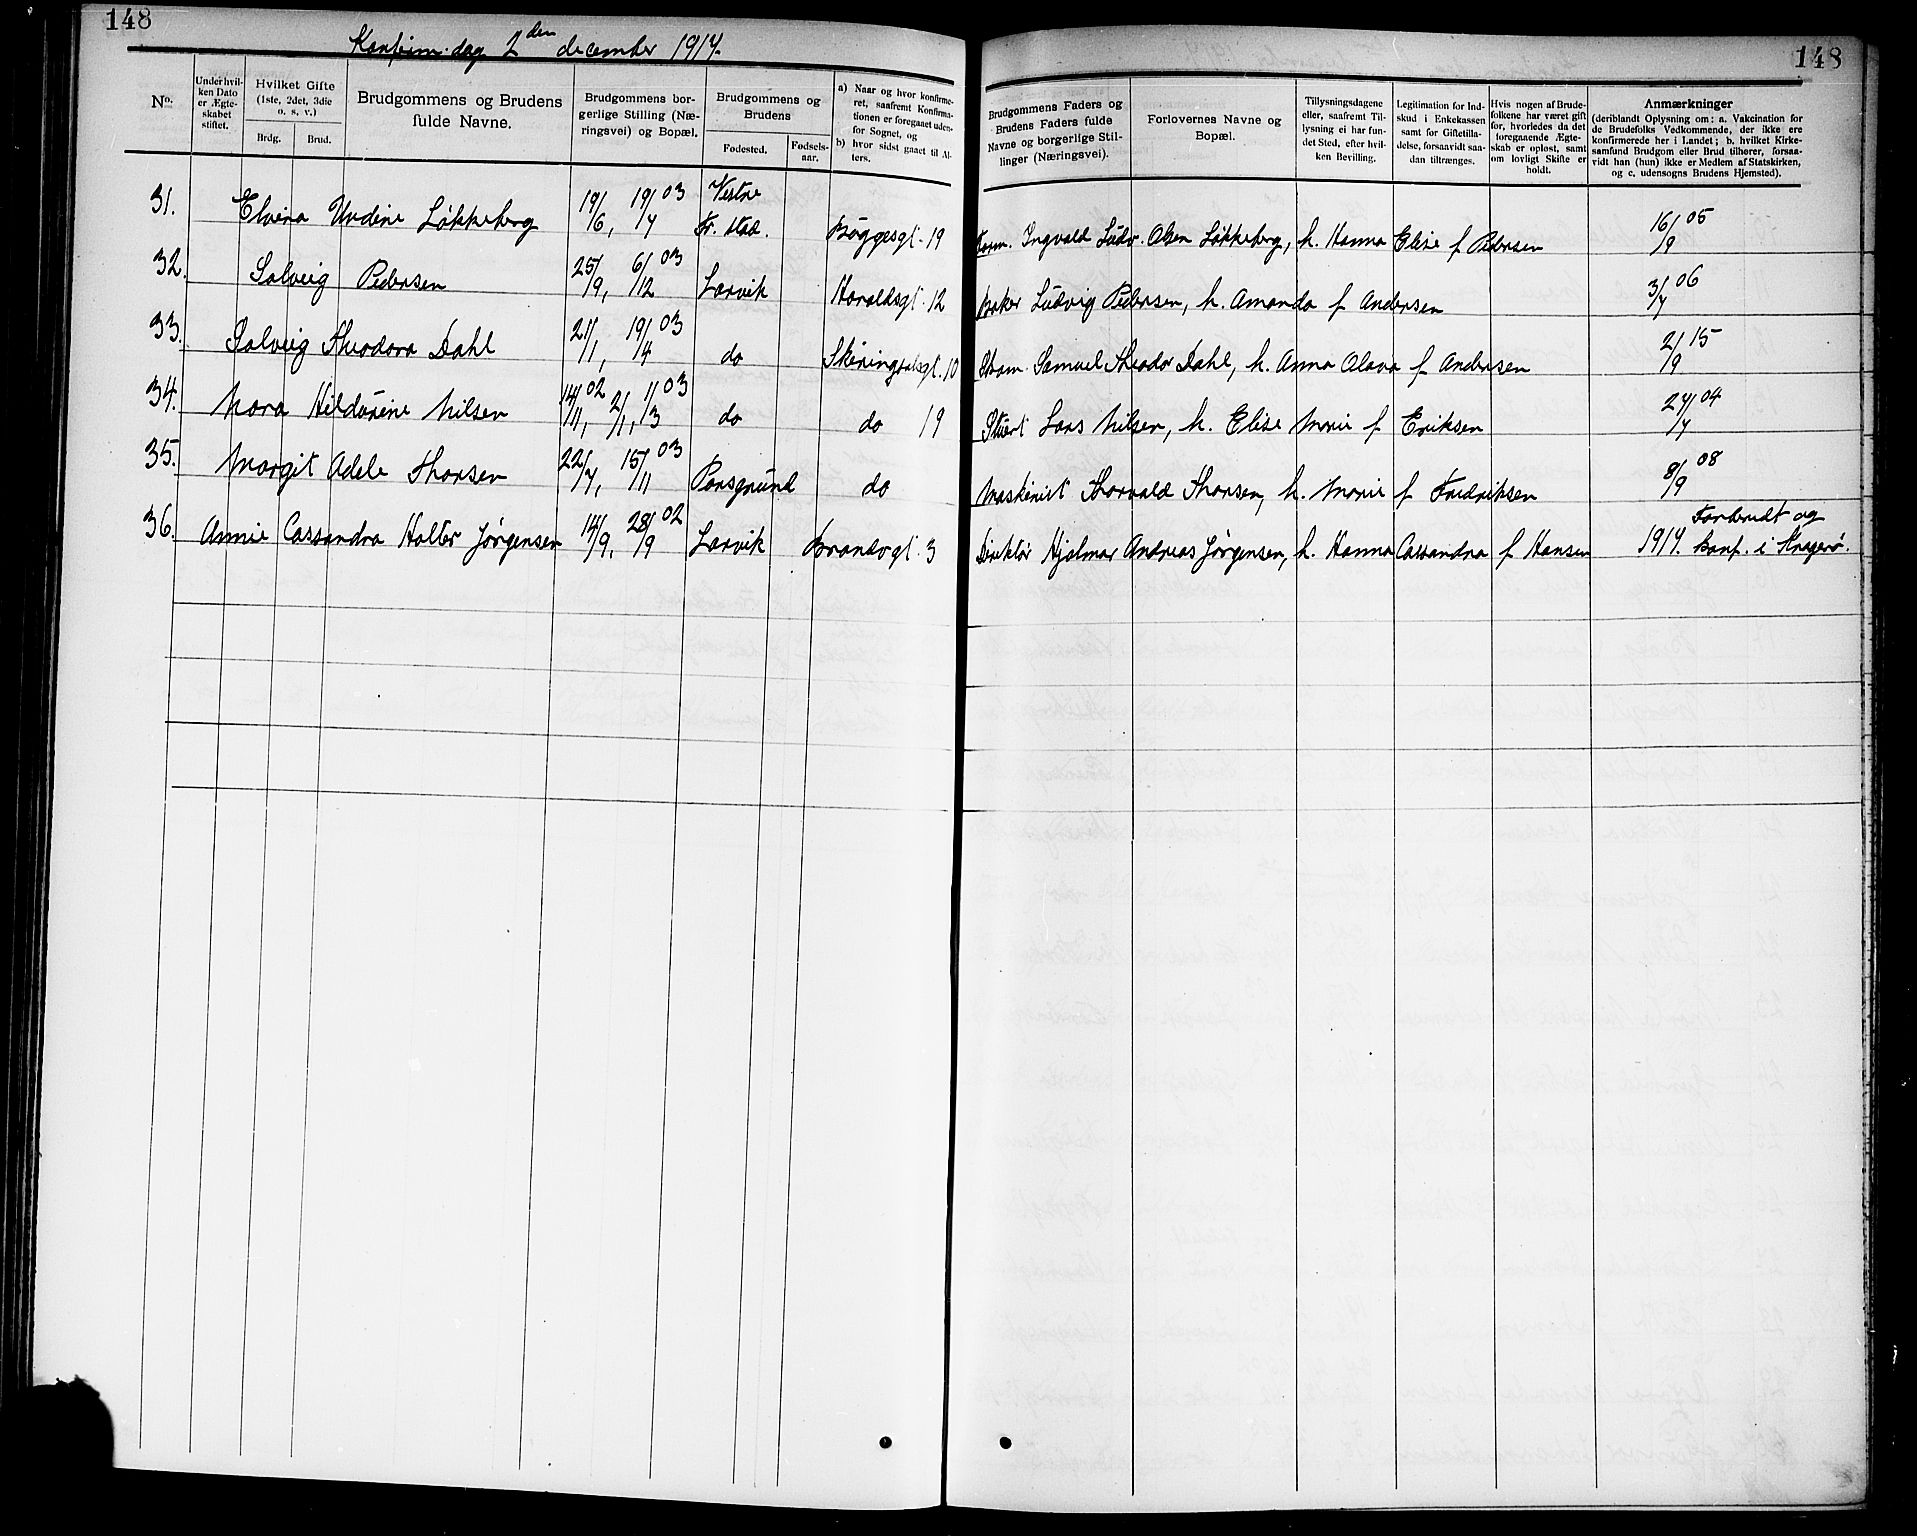 148
Konfirm. dag 2den december 1917.
No.
Under hvilken Dato er Ægteskabet stiftet.
Hvilket Gifte (1ste, 2det, 3die o. s. v.)
Brdg.
Brud.
Brudgommens og Brudens fulde Navne.
Brudgommens borgerlige Stilling (Næringsvei) og Bopæl.
Brudgommens og Brudens
Fødested.
Fødselsaar.
a) Naar og hvor konfirmeret, saafremt Konfirmationen er foregaaet udenfor Sognet, og
b) hvor sidst gaaet til Alters.
31. Elvira Undine Løkkeberg 19/6, 19/7 03 Vestre Fr.stad. Bøggesgt. 19
32. Solveig Pedersen 25/9, 6/12 03 Larvik Haraldsgt. 12
33. Solveig Theodora Dahl 21/1, 19/4 03 do Skiringsalsgt. 10
34. Nora Hildurine Nilsen 14/11 02, 2/1, 1/3 03 do do 19
35. Margit Adele Thorsen 22/7, 15/11 03 Porsgrund do
36. Annie Cassandra Holter Jørgensen 14/9, 28/9 02 Larvik Brandvgt. 3
148
Brudgommens Faders og Brudens Faders fulde Navne og borgerlige Stillinger (Næringsvei).
Forlovernes Navne og Bopæl.
Tillysningsdagene eller, saafremt Tillysning ei har fundet Sted, efter hvilken Bevilling.
Legitimation for Indskud i Enkekassen samt for Giftetilladelse, forsaavidt saadan tiltrænges.
Hvis nogen af Brudefolkene har været gift før, hvorledes da det foregaaende Ægteskab er opløst, samt om lovligt Skifte er holdt.
Anmærkninger
(deriblandt Oplysning om: a. Vakcination for de Brudefolks Vedkommende, der ikke ere konfirmerede her i Landet; b. hvilket Kirkesamfund Brudgom eller Brud tilhører, forsaavidt han (hun) ikke er Medlem af Statskirken, og c. udensogns Brudens Hjemsted).
Ingvald Ludv. Olsen Løkkeberg, h. Hanna Elise f Pedersen 16/9 05
Baker Ludvig Pedersen, h. Amanda f Andersen 3/7 06
Samuel Theodor Dahl, h. Anna Olava f Andersen 2/9 15
Stuert Lars Nilsen, h. Elise Marie f Eriksen 27/7 04
Maskinist Thorvald Thorsen, h. Marie f Fredriksen 8/9 08
Direktør Hjalmar Andreas Jørgensen, h. Hanna Cassandra f Hansen 1917. Forberedt og konf. i Kragerø.